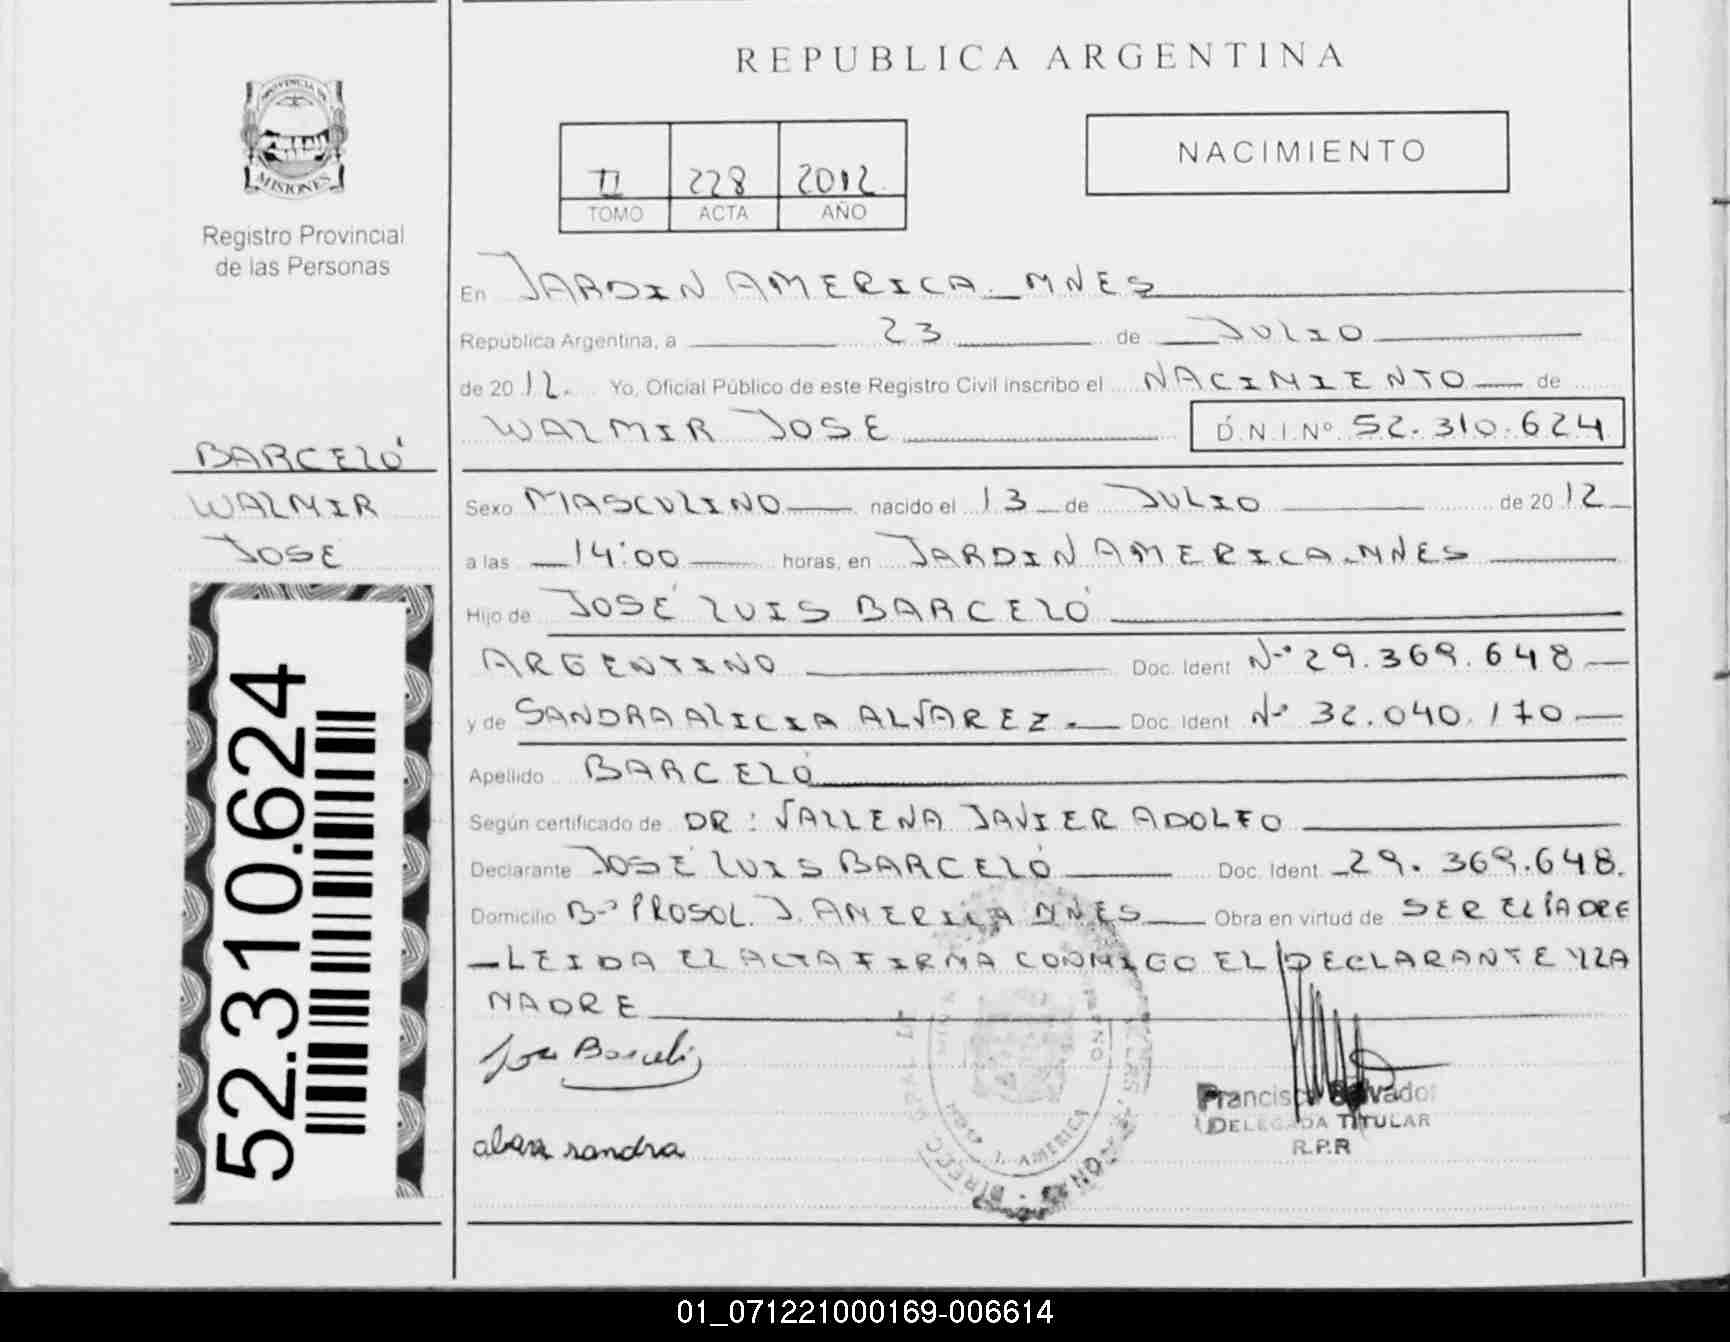 REPUBLICA ARGENTINA
PROVINCIA DE
MISIONES
Registro Provincial
de las Personas
NACIMIENTO
II 228 2012
TOMO ACTA AÑO
En JARDIN AMERICA - MNES
República Argentina, a 23 de JULIO
de 2012. Yo, Oficial Público de este Registro Civil inscribo el NACIMIENTO de
WALMIR JOSE D.N.I.Nº 52.310.624
BARCELÓ
WALMIR
JOSE
52.310.624
Sexo MASCULINO nacido el 13 de JULIO de 2012
a las 14:00 horas, en JARDIN AMERICA - MNES
Hijo de JOSÉ LUIS BARCELÓ
ARGENTINO Doc. Ident Nº 29.369.648
y de SANDRA ALICIA ALVAREZ. Doc. Ident Nº 32.040.170
Apellido BARCELÓ
Según certificado de DR: VALLENA JAVIER ADOLFO
Declarante JOSÉ LUIS BARCELÓ Doc. Ident 29.369.648.
Domicilio Bº PROSOL. J. AMERICA MNES Obra en virtud de SER EL PADRE
LEIDA EL ACTA FIRMA CONMIGO EL DECLARANTE Y LA
MADRE
Jose Barceló
alvarez sandra
J. AMERICA
Francisco Salvador
DELEGADA TITULAR
R.P.R
01_071221000169-006614